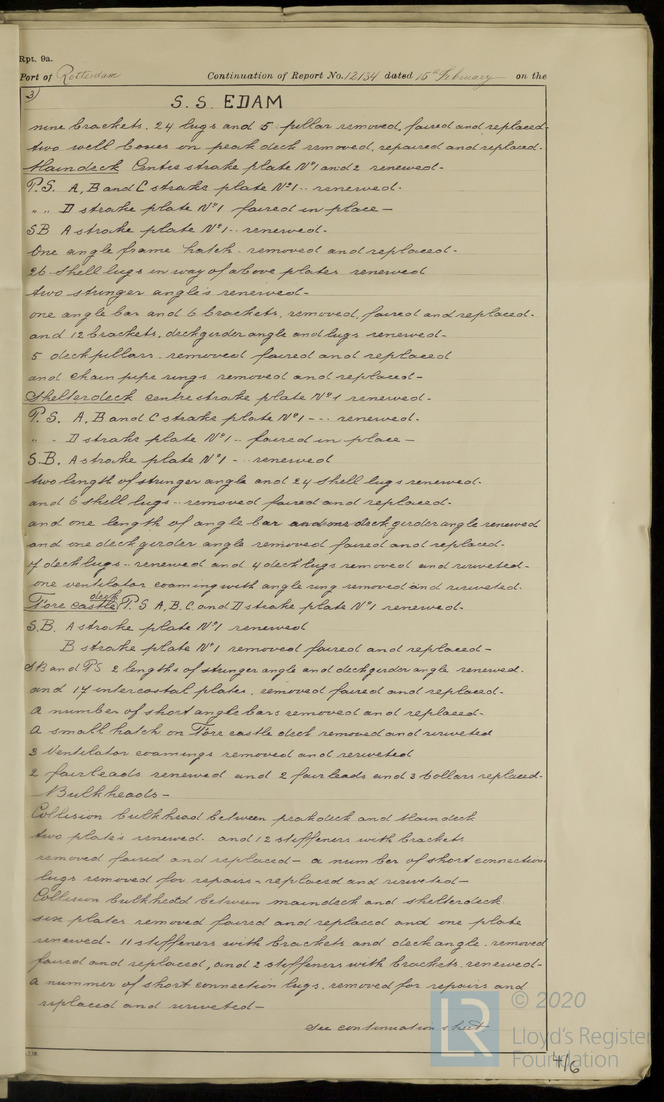 Rpt. 9a.
Port of Rotterdam Continuation of Report No. 12134 dated 15th February on the
3)
S.S. EDAM
nine brackets. 24 lugs and 5 pillar removed, faired and replaced-
two well covers on peak deck removed, repaired and replaced-
Maindeck Centre strake plate No1 and 2 renewed-
P.S. A, B and C strake plate No1 -- renewed-
" " D strake plate No1 faired in place-
SB A strake plate No1 -- renewed-
One angle frame hatch - removed and replaced-
26 shell lugs in way of above plates renewed
two stringer angles renewed-
one angle bar and 6 brackets, removed, faired and replaced-
and 12 brackets, deckgirder angle and lugs renewed-
5 deckpillars - removed faired and replaced
and chain pipe rings removed and replaced-
Shelterdeck centre strake plate No1 renewed-
P.S. A, B and C strake plate No1 --- renewed-
" - D strake plate No1 -- faired in place-
S.B. A strake plate No1 - renewed
two length of stringer angle and 24 shell lugs renewed-
and 6 shell lugs -- removed faired and replaced-
and one length of angle bar and one deck girder angle renewed
and one deck girder angle removed faired and replaced-
7 decklugs -- renewed and 4 deck lugs removed and riveted-
one ventilator coaming with angle ring removed and riveted-
Fore castle deck P.S A, B, C and D strake plate No1 renewed-
S.B. A strake plate No1 renewed
B strake plate No1 removed faired and replaced-
SB and PS 2 lengths of stringer angle and deckgirder angle renewed-
and 17 intercostal plates, removed faired and replaced-
A number of short angle bars removed and replaced-
A small hatch on Fore castle deck removed and riveted
3 Ventilator coamings removed and riveted
2 fairleads renewed and 2 fairleads and 3 bollars replaced-
Bulkheads-
Collision bulkhead between peakdeck and Maindeck
two plate's renewed- and 12 stiffeners with brackets
removed faired and replaced- a number of short connection
lugs removed for repairs - replaced and riveted-
Collision bulkhead between maindeck and shelterdeck
six plates removed faired and replaced and one plate
renewed- 11 stiffeners with brackets and deckangle - removed
faired and replaced, and 2 stiffeners with brackets, renewed-
a nummer of short connection lugs, removed for repairs and
replaced and riveted-
See continuation sheet
4/6
LR
© 2020
Lloyd's Register
Foundation